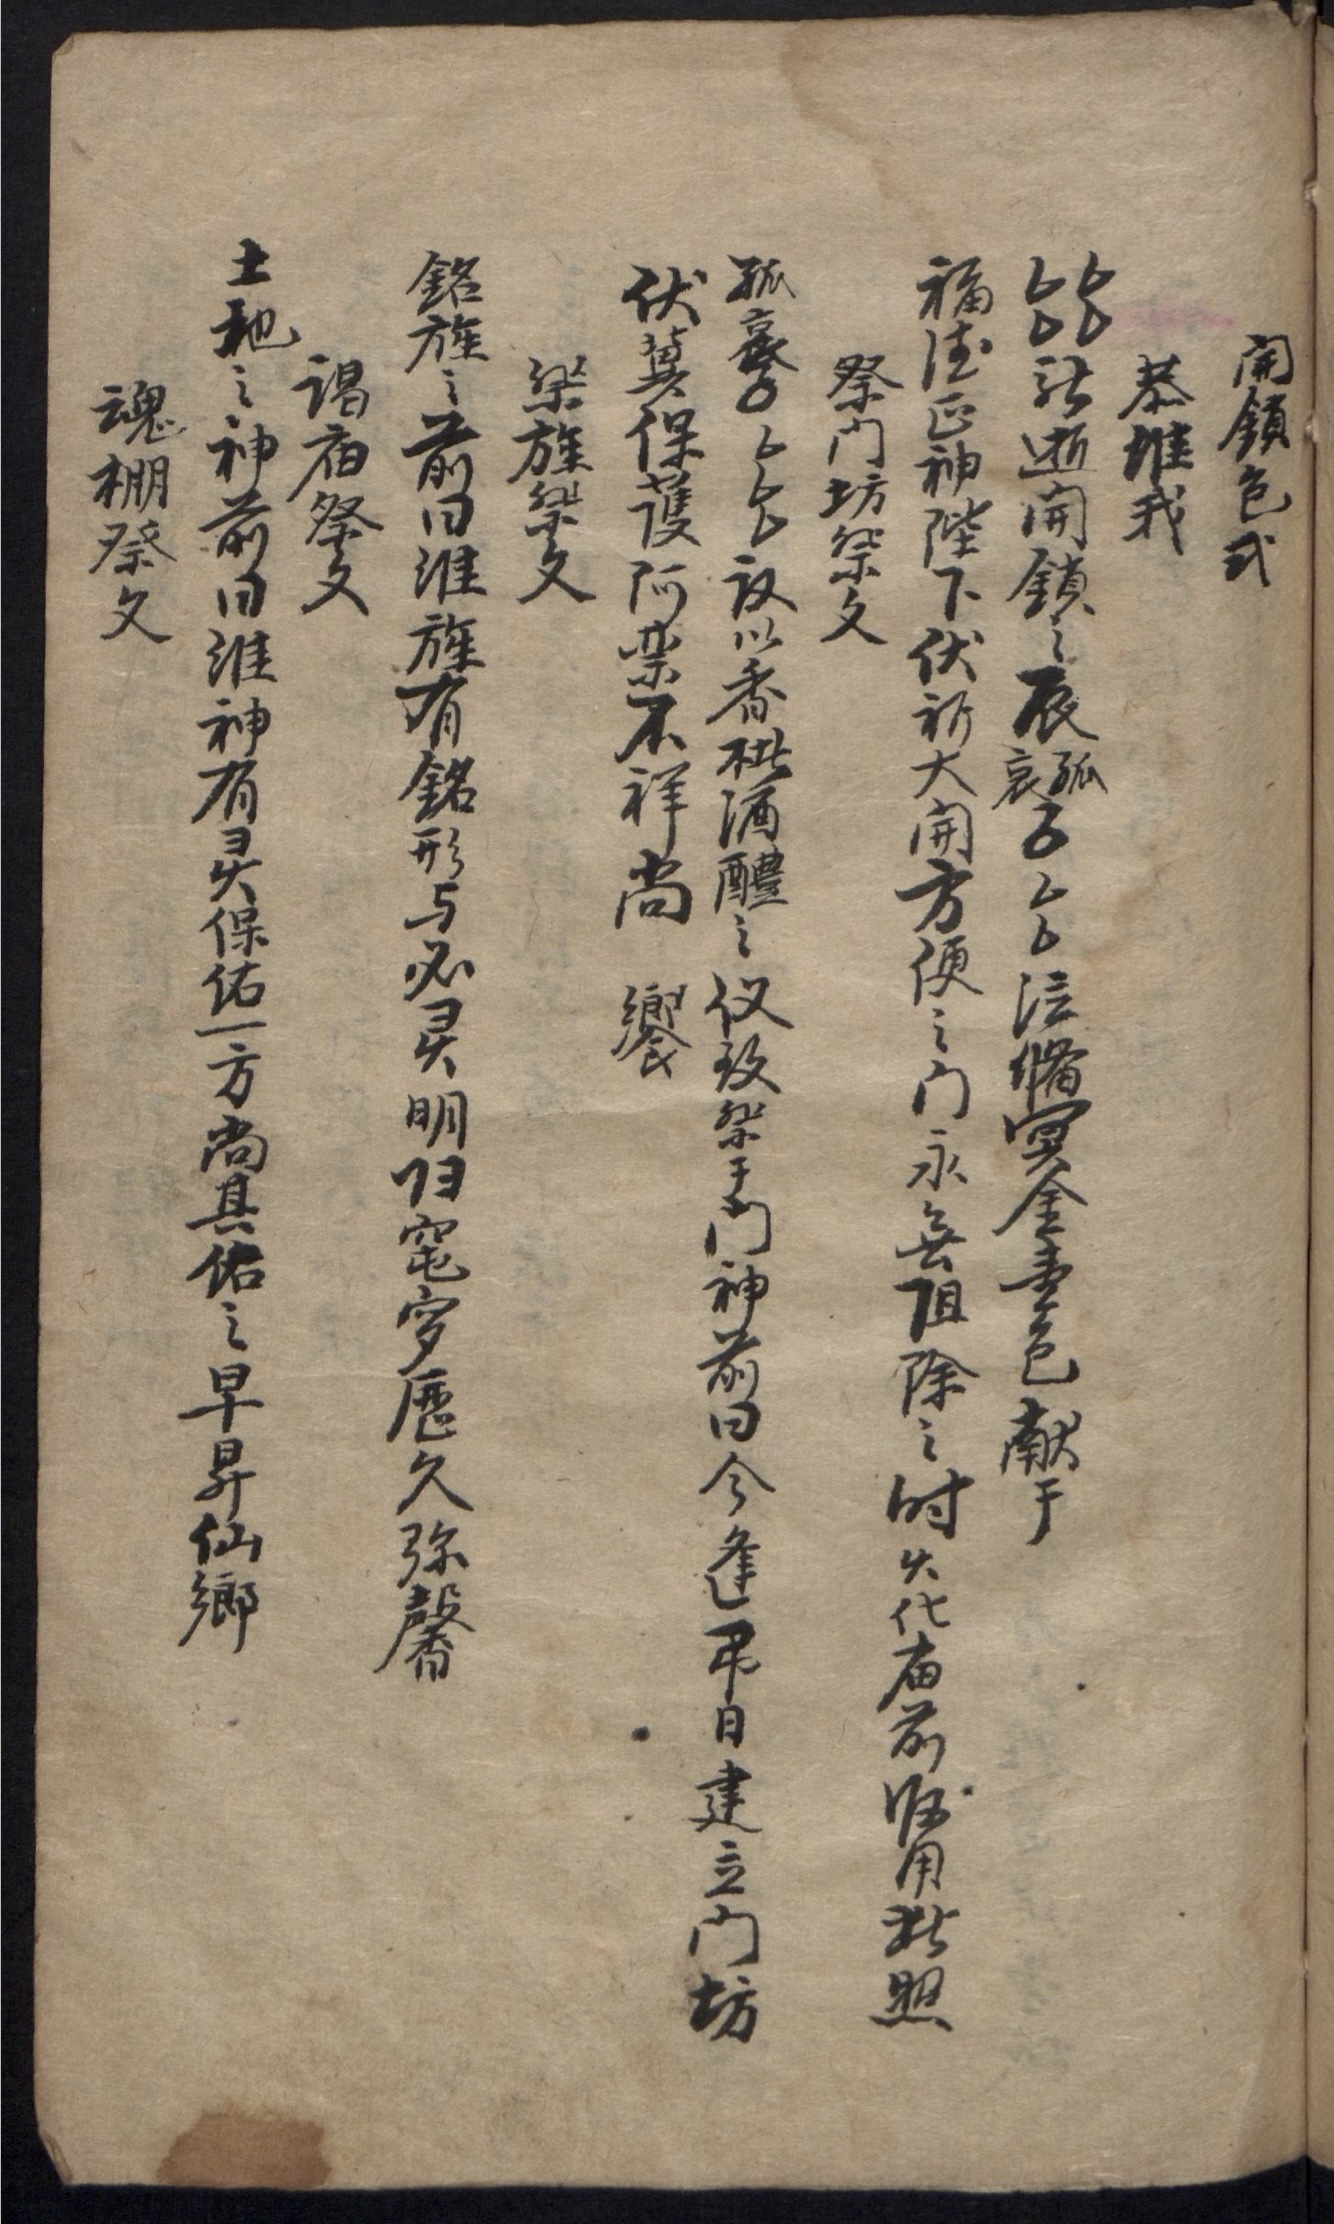 開鎖包式
恭惟我
厶厶新逝開鎖之辰孤哀子厶厶法備冥金壹包献于
福德正神陛下伏祈大開方便之门永無阻除之时火化庙前收用执照
祭门坊祭文
孤哀子厶厶敬以香楮酒醴之仪致祭于門神前曰今逢弔日建立门坊
伏冀保護阿禁不祥尚 饗
祭旌祭文
銘旌之前曰惟旌有銘形与必灵明归窀穸歷久弥馨
谒庙祭文
土地之神前曰惟神有灵保佑一方尚其佑之早昇仙鄉
魂棚祭文